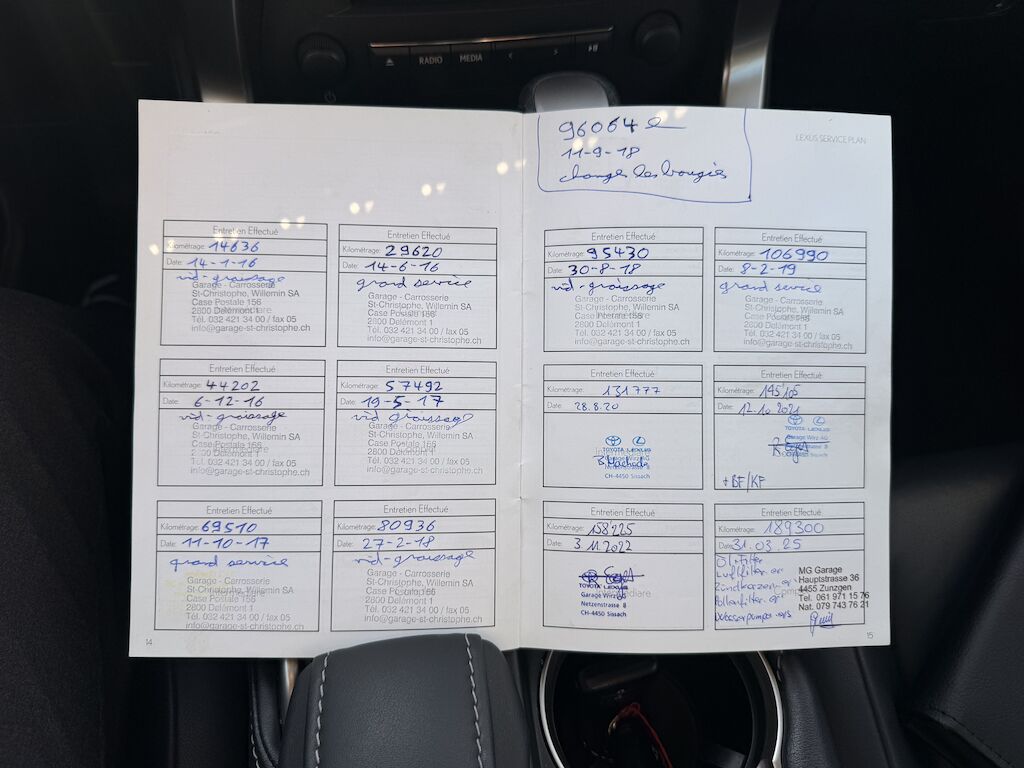 RADIO
MEDIA
96064
11-9-18
changer les bougies
LEXUS SERVICE PLAN
Entretien Effectué
Kilométrage: 14636
Date: 14-1-16
vid-graissage
Garage - Carrosserie
St-Christophe, Willemin SA
Case Postale 156
2800 Delémont 1
Tél. 032 421 34 00 / fax 05
info@garage-st-christophe.ch
Entretien Effectué
Kilométrage: 29620
Date: 14-6-16
grand service
Garage - Carrosserie
St-Christophe, Willemin SA
Case Postale 156
2800 Delémont 1
Tél. 032 421 34 00 / fax 05
info@garage-st-christophe.ch
Entretien Effectué
Kilométrage: 44202
Date: 6-12-16
vid-graissage
Garage - Carrosserie
St-Christophe, Willemin SA
Case Postale 156
2800 Delémont 1
Tél. 032 421 34 00 / fax 05
info@garage-st-christophe.ch
Entretien Effectué
Kilométrage: 57492
Date: 19-5-17
vid graissage
Garage - Carrosserie
St-Christophe, Willemin SA
Case Postale 156
2800 Delémont 1
Tél. 032 421 34 00 / fax 05
info@garage-st-christophe.ch
Entretien Effectué
Kilométrage: 69510
Date: 11-10-17
grand service
Garage - Carrosserie
St-Christophe, Willemin SA
Case Postale 156
2800 Delémont 1
Tél. 032 421 34 00 / fax 05
info@garage-st-christophe.ch
Entretien Effectué
Kilométrage: 80936
Date: 27-2-18
vid-graissage
Garage - Carrosserie
St-Christophe, Willemin SA
Case Postale 156
2800 Delémont 1
Tél. 032 421 34 00 / fax 05
info@garage-st-christophe.ch
14
Entretien Effectué
Kilométrage: 95430
Date: 30-8-18
vid-graissage
Garage - Carrosserie
St-Christophe, Willemin SA
Case Postale 156
2800 Delémont 1
Tél. 032 421 34 00 / fax 05
info@garage-st-christophe.ch
Entretien Effectué
Kilométrage: 106990
Date: 8-2-19
grand service
Garage - Carrosserie
St-Christophe, Willemin SA
Case Postale 156
2800 Delémont 1
Tél. 032 421 34 00 / fax 05
info@garage-st-christophe.ch
Entretien Effectué
Kilométrage: 131777
Date: 28.8.20
TOYOTA LEXUS
Garage Wirz AG
Netzenstrasse 8
CH-4450 Sissach
Entretien Effectué
Kilométrage: 145105
Date: 12.10.2021
TOYOTA LEXUS
Garage Wirz AG
CH-4450 Sissach
+BF/KF
Entretien Effectué
Kilométrage: 158225
Date: 3.11.2022
TOYOTA LEXUS
Garage Wirz AG
Netzenstrasse 8
CH-4450 Sissach
Entretien Effectué
Kilométrage: 189300
Date: 31.03.25
Ölfilter
Luftfilter er
Zündkerzen er
Pollenfilter er
Wasserpumpe ers
MG Garage
Hauptstrasse 36
4455 Zunzgen
Tel. 061 971 15 76
Nat. 079 743 76 21
15